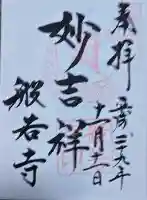 奉拝
平成二九年
十一月十一日
妙吉祥
般若寺